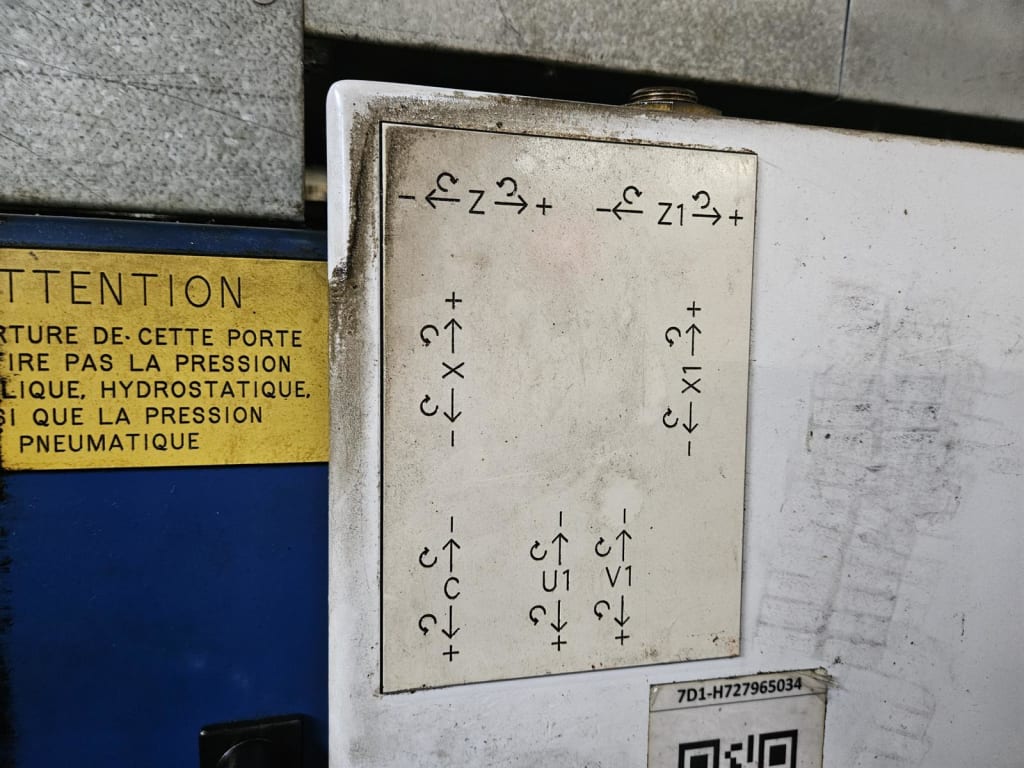 TTENTION
RTURE DE CETTE PORTE
IRE PAS LA PRESSION
LIQUE, HYDROSTATIQUE,
SI QUE LA PRESSION
PNEUMATIQUE
- ← Z → +
- ← Z1 → +
+ ↑ X ↓ -
+ ↑ X1 ↓ -
- ↑ C ↓ +
- ↑ U1 ↓ +
- ↑ V1 ↓ +
7D1-H727965034